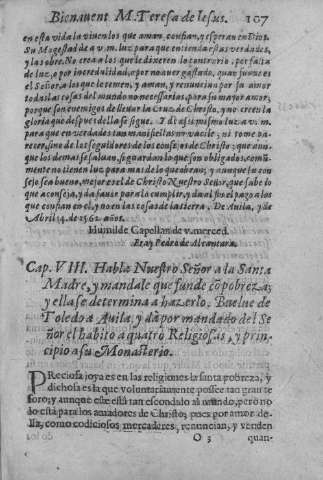 Bienauent M. Teresa de Iesus. 107
en esta vida la viuen los que aman, confian, y esperan en Dios.
Su Magestad de a v.m. luz para que entienda estas verdades,
y las obre. No crea a los que le dixeren lo contrario, por falta
de luz, o por incredulidad, o por no auer gustado, quan suaue es
el Señor, a los que le temen, y aman, y renuncian por su amor
todas las cosas del mundo no necessarias, para su mayor amor;
porque son enemigos de lleuar la Cruz de Christo, y no creen la
gloria que despues della se sigue. Y dè assi mismo luz a v.m.
para que en verdades tan manifiestas no vacile; ni tome pa-
recer, sino de los seguidores de los consejos de Christo: que aun-
que los demas se saluan, si guardan lo que son obligados, comũ-
mente no tienen luz para mas de lo que obran; y aunque su con
sejo sea bueno, mejor es el de Christo Nuestro Señor, que sabe lo
que aconseja, y da fauor para lo cumplir, y da al fin el pago a los
que confian en el, y no en las cosas de la tierra. De Auila, y de
Abril 14. de 1562. años.
Humilde Capellan de v. merced.
Fray Pedro de Alcantara.
Cap. VIII. Habla Nuestro Señor a la Santa
Madre, y mandale que funde cõ pobreza;
y ella se determina a hazerlo. Buelue de
Toledo a Auila, y da por mandado del Se
ñor el habito a quatro Religiosas, y prin-
cipio a su Monasterio.
PReciosa joya es en las religiones la santa pobreza, y
dichosa es la que voluntariamente possee tan gran te
soro; y aunque este està tan escondido al mundo, pero no
lo està para los amadores de Christo, pues por amor de-
lla, como codiciosos mercaderes, renuncian, y venden
O 3 quan-